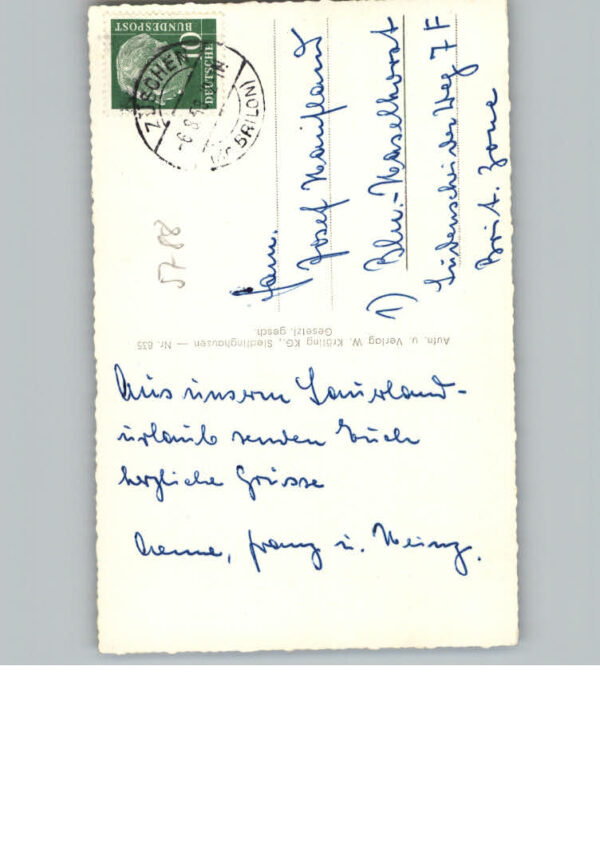 DEUTSCHE
BUNDESPOST
10
ZÜSCHEN
-6.8.5
BRILON)
5788
Fam.
Josef Kaufland
1) Bln.-Haselhorst
Lüdenscheider Weg 7 F
Brit. Zone
Aufn. u. Verlag: W. Kröling KG., Siedlinghausen — Nr. 635
Gesetzl. gesch.
Aus unserm Sauerland-
urlaub senden Euch
herzliche Grüsse
Franz u. Heinz.